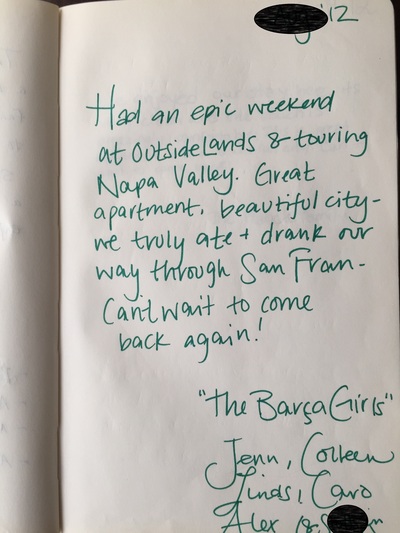 '12
Had an epic weekend
at Outsidelands & touring
Napa Valley. Great
apartment, beautiful city-
we truly ate + drank our
way through San Fran-
Can't wait to come
back again!
"The Barça Girls"
Jenn, Colleen
Linds, Caro
Alex &